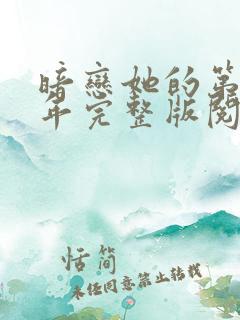 暗戀她的第
年完整版閱
恬簡
未经同意禁止转载